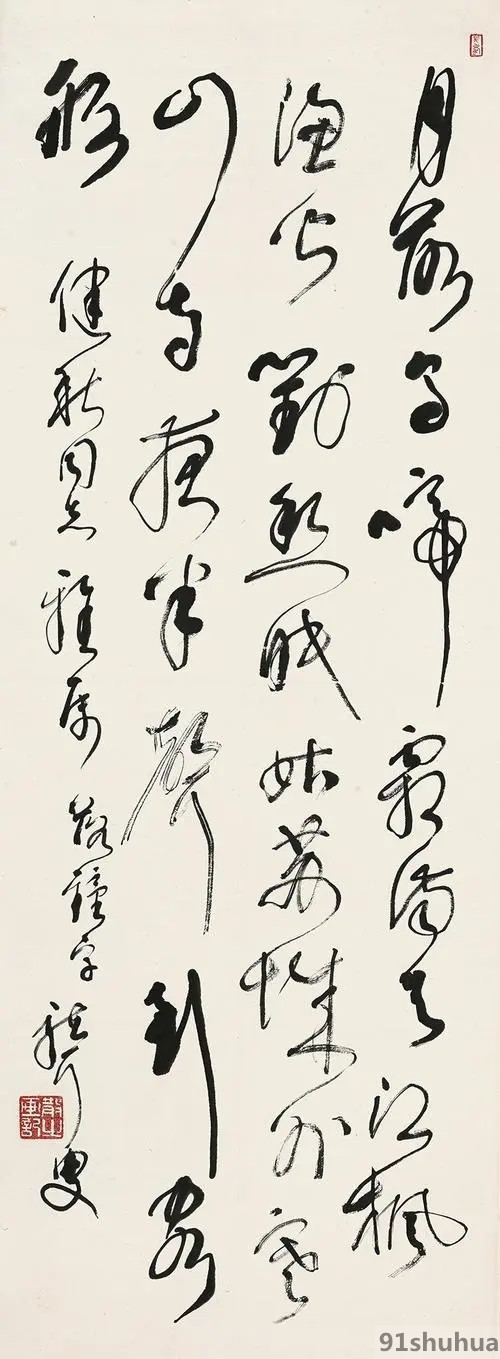 月落乌啼霜满天江枫
渔火对愁眠姑苏城外寒
山寺夜半声到客
船 健秋同志雅属 落钟字 散之
91shuhua